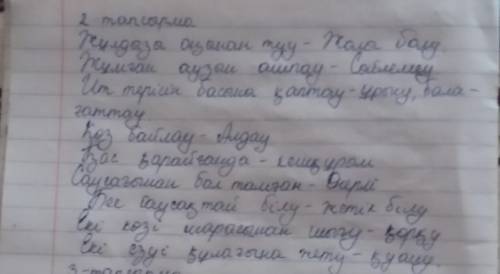 2 тапсырма
Жұлдызы оңынан туу - Жолы болу.
Жұмған аузын ашпау - Сөйлемеу
Ит терісін басына қаптау - ұрысу, бала-
ғаттау
Көз байлау - Алдау
Қас қарайғанда - кешқұрым
Саусағынан бал тамған - Өнерлі
Бес саусақтай білу - жетік білу
Екі көзі шарасынан шығу - қорқу
Екі езуі құлағына жету - қуану.
3-тапсырма